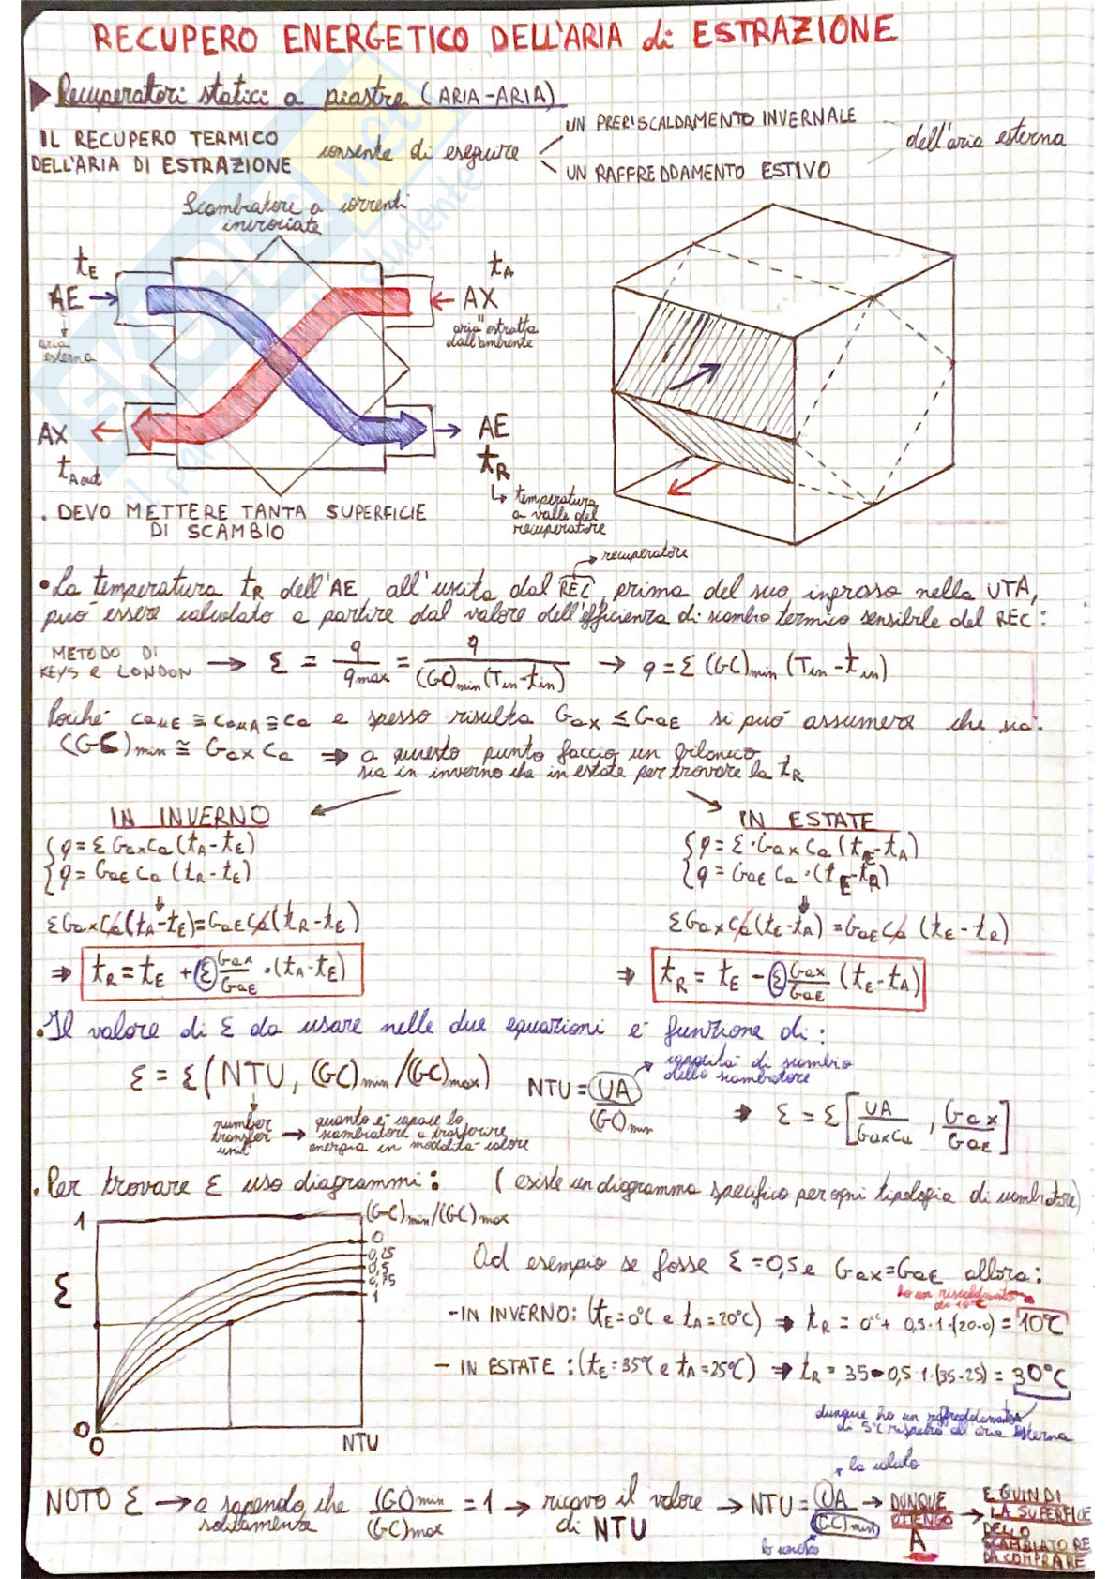 RECUPERO ENERGETICO DELL'ARIA di ESTRAZIONE
Recuperatori statici a piastre (ARIA-ARIA)
IL RECUPERO TERMICO
DELL'ARIA DI ESTRAZIONE consente di eseguire
UN PRERISCALDAMENTO INVERNALE
UN RAFFREDDAMENTO ESTIVO
dell'aria esterna
Scambiatore a correnti
incrociate
tE
AE →
aria
esterna
tA
← AX
aria estratta
dall'ambiente
AX ←
tAout
→ AE
tR
↳ temperatura
a valle del
recuperatore
. DEVO METTERE TANTA SUPERFICIE
DI SCAMBIO
→ recuperatore
• La temperatura tR dell'AE all'uscita dal REC, prima del suo ingresso nella UTA,
può essere calcolato a partire dal valore dell'efficienza di scambio termico sensibile del REC:
METODO DI
KEYS e LONDON → Ɛ = q/qmax = q/((GC)min(Tin-tin)) → q = Ɛ (GC)min (Tin-tin)
Poiché caME ≅ caMA ≅ ca e spesso risulta Gax ≤ GaE si può assumere che sia:
(GC)min ≅ Gax Ca ⇒ a questo punto faccio un bilancio
sia in inverno che in estate per trovare la tR
IN INVERNO
{q = Ɛ Gax Ca (tA-tE)
{q = GaE Ca (tR-tE)
Ɛ Gax Ca (tA-tE) = GaE Ca (tR-tE)
⇒ tR = tE + Ɛ Gax/GaE · (tA-tE)
IN ESTATE
{q = Ɛ · Gax Ca (tE-tA)
{q = GaE Ca · (tE-tR)
Ɛ Gax Ca (tE-tA) = GaE Ca (tE-tR)
⇒ tR = tE - Ɛ Gax/GaE (tE-tA)
. Il valore di Ɛ da usare nelle due equazioni e' funzione di:
Ɛ = Ɛ (NTU, (GC)min/(GC)max)
NTU = UA/(GC)min
capacità di scambio
dello scambiatore
⇒ Ɛ = Ɛ [UA/GaxCa, Gax/GaE]
number
transfer
unit
→ quanto e' capace lo
scambiatore a trasferire
energia in modalità calore
. Per trovare Ɛ uso diagrammi: (esiste un diagramma specifico per ogni tipologia di scambiatore)
1
(GC)min/(GC)max
0
0,25
0,5
0,75
1
Ɛ
0
0
NTU
Ad esempio se fosse Ɛ = 0,5 e Gax = GaE allora:
ho un riscaldamento
di 10°C
- IN INVERNO: (tE = 0°C e tA = 20°C) ⇒ tR = 0 + 0,5·1·(20-0) = 10°C
- IN ESTATE: (tE = 35°C e tA = 25°C) ⇒ tR = 35 - 0,5·1·(35-25) = 30°C
dunque ho un raffreddamento
di 5°C rispetto all'aria esterna
NOTO Ɛ → e sapendo che (GC)min/(GC)max = 1 → ricavo il valore
solitamente
di NTU
→ NTU = UA/(GC)min
lo calcolo
→ DUNQUE
OTTENGO
A
→ E QUINDI
LA SUPERFICE
DELLO
SCAMBIATORE
DA COMPRARE